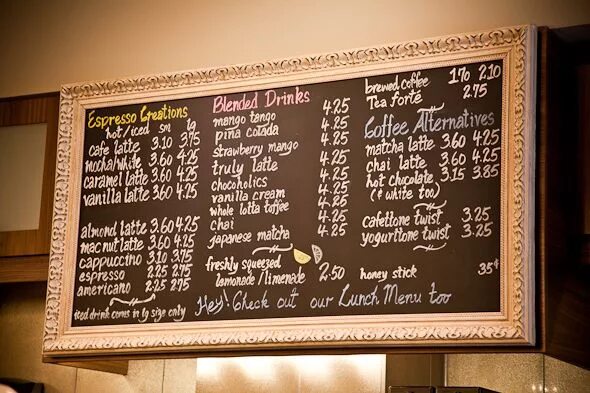 Espresso Creations
hot/iced sm lg
cafe latte 3.10 3.75
mocha/white 3.60 4.25
caramel latte 3.60 4.25
vanilla latte 3.60 4.25
almond latte 3.60 4.25
mac nut latte 3.60 4.25
cappuccino 3.10 3.75
espresso 2.25 2.75
americano 2.25 2.75
iced drink comes in lg size only
Blended Drinks
mango tango 4.25
piña colada 4.25
strawberry mango 4.25
truly latte 4.25
chocoholics 4.25
vanilla cream 4.25
whole lotta toffee 4.25
chai 4.25
japanese matcha 4.25
freshly squeezed
lemonade/limenade 2.50
brewed coffee 1.70 2.10
Tea forte 2.75
Coffee Alternatives
matcha latte 3.60 4.25
chai latte 3.60 4.25
hot chocolate 3.15 3.85
(& white too)
cafettone twist 3.25
yogurttone twist 3.25
honey stick 35¢
Hey! Check out our Lunch Menu too